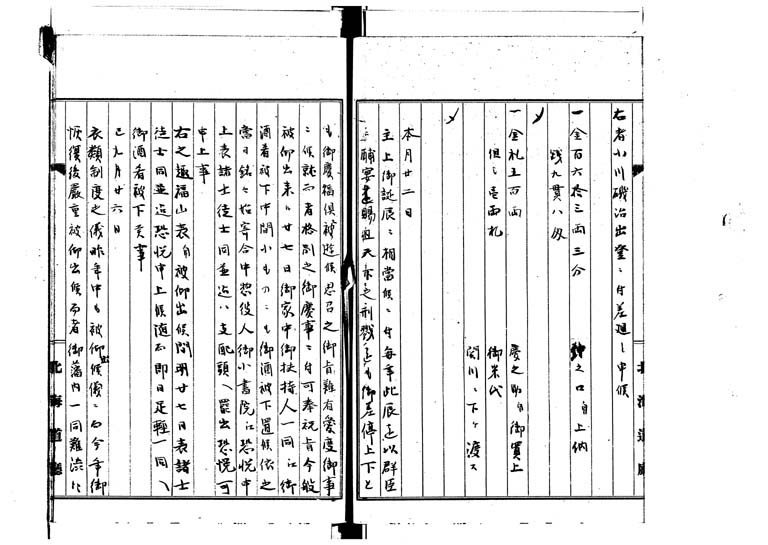 右者小川磯治出登ニ付差廻シ申候
一金百六拾三両三分
銭九貫八匁
沖之口ゟ上納
一金札五百両
但シ壱両札
慶之助ゟ御買上
御米代
関川ニ下ケ渡ス
本月廿二日
主上御誕辰ニ相当候ニ付毎年此辰を以群臣
ニ酺宴を賜
天下之刑戮を御差停上下と
も御慶福俱被遊候思召之御旨難有慶度御事
ニ候就而者格別之御慶事ニ付可奉祝旨今般
被仰出来ル廿七日御家中御扶持人一同江御
酒肴被下中間小もの二も御酒被下置候依之
当日銘々始寄合中惣役人御小書院江恐悦申
上表諸士徒士同並迄ハ支配頭へ罷出恐悦可
申上事
右之趣福山表ゟ被仰出候間明廿七日表諸士
徒士同並迄恐悦申上候随而即日足軽一同へ
御酒肴被下候事
已九月廿六日
衣類制度之儀昨年中も被仰出候儀ニ而今年御
恢復後厳重被仰出候而者御藩内一同難渋ニ
北海道庁
北海道庁